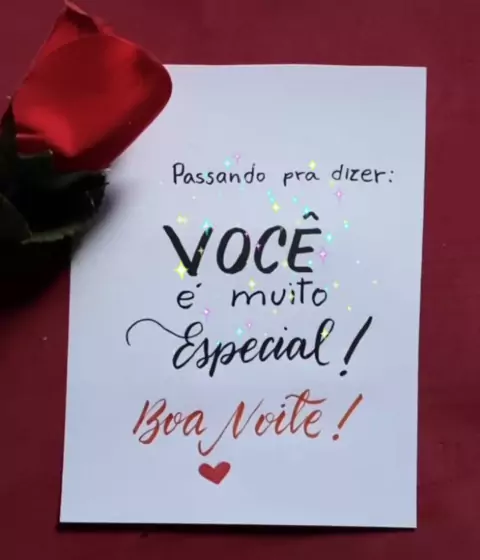 Passando pra dizer:
VOCÊ
é muito
Especial!
Boa Noite!